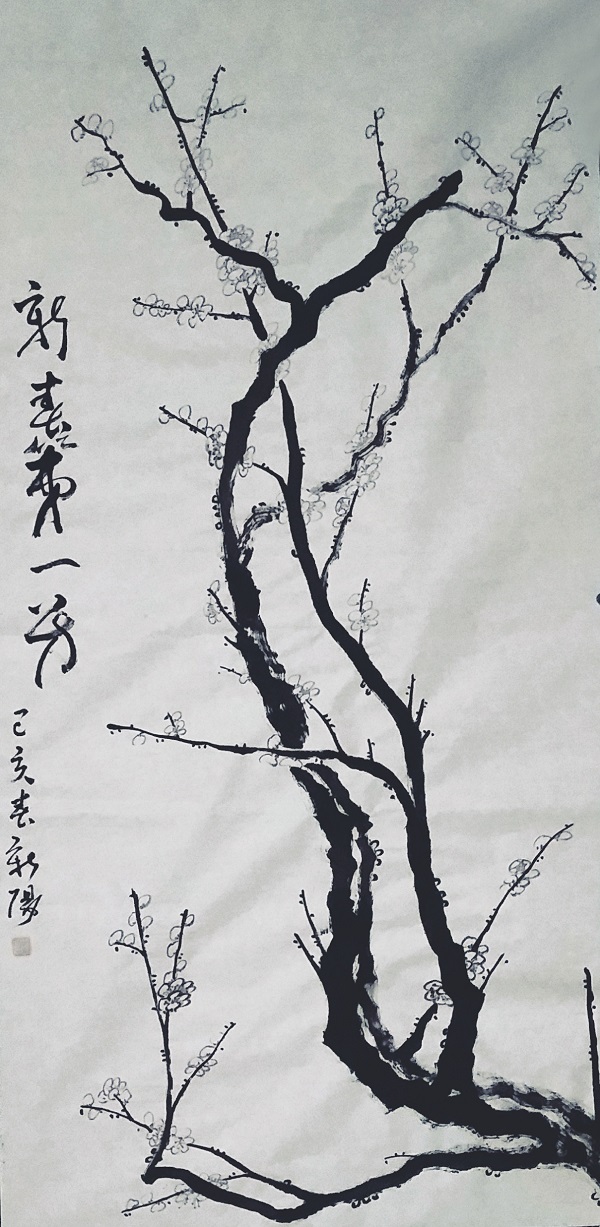 新春第一芳
己亥春新陽